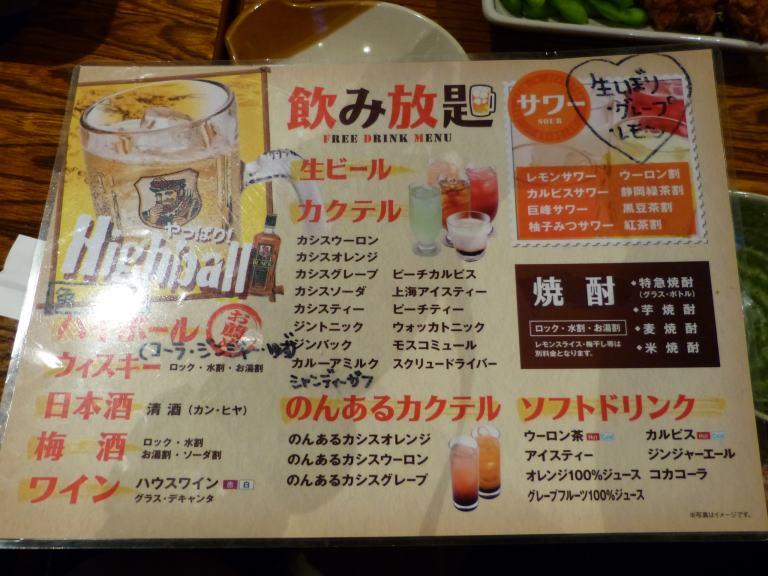 飲み放題
FREE DRINK MENU
やっぱり!
Highball
ハイボール
お勧
(コーラ・ジンジャー・ゆず
ウィスキー ロック・水割・お湯割
日本酒 清酒(カン・ヒヤ)
梅酒 ロック・水割
お湯割・ソーダ割
ワイン ハウスワイン 赤 白
グラス・デキャンタ
生ビール
カクテル
カシスウーロン
カシスオレンジ
カシスグレープ ピーチカルピス
カシスソーダ 上海アイスティー
カシスティー ピーチティー
ジントニック ウォッカトニック
ジンバック モスコミュール
カルーアミルク スクリュードライバー
シャンディーガフ
のんあるカクテル
のんあるカシスオレンジ
のんあるカシスウーロン
のんあるカシスグレープ
サワー
SOUR
生しぼり
・グレープ
・レモン
レモンサワー ウーロン割
カルピスサワー 静岡緑茶割
巨峰サワー 黒豆茶割
柚子みつサワー 紅茶割
焼酎
ロック・水割・お湯割
レモンスライス・梅干し等は
別料金となります。
・特急焼酎
(グラス・ボトル)
・芋焼酎
・麦焼酎
・米焼酎
ソフトドリンク
ウーロン茶 Hot Cold カルピス Hot Cold
アイスティー ジンジャーエール
オレンジ100%ジュース コカコーラ
グレープフルーツ100%ジュース
※写真はイメージです。